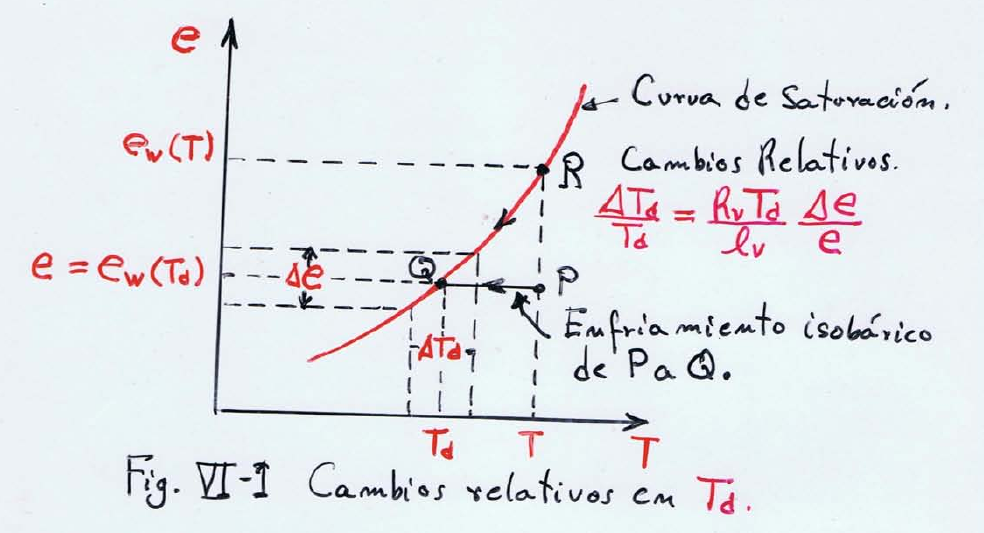 e
Curva de Saturación.
e_w(T)
R
Cambios Relativos.
ΔT_d/T_d = R_v T_d/l_v Δe/e
e = e_w(T_d)
Δe
Q
P
Enfriamiento isobárico
de P a Q.
ΔT_d
T_d
T
T
Fig. VI-1 Cambios relativos en T_d.